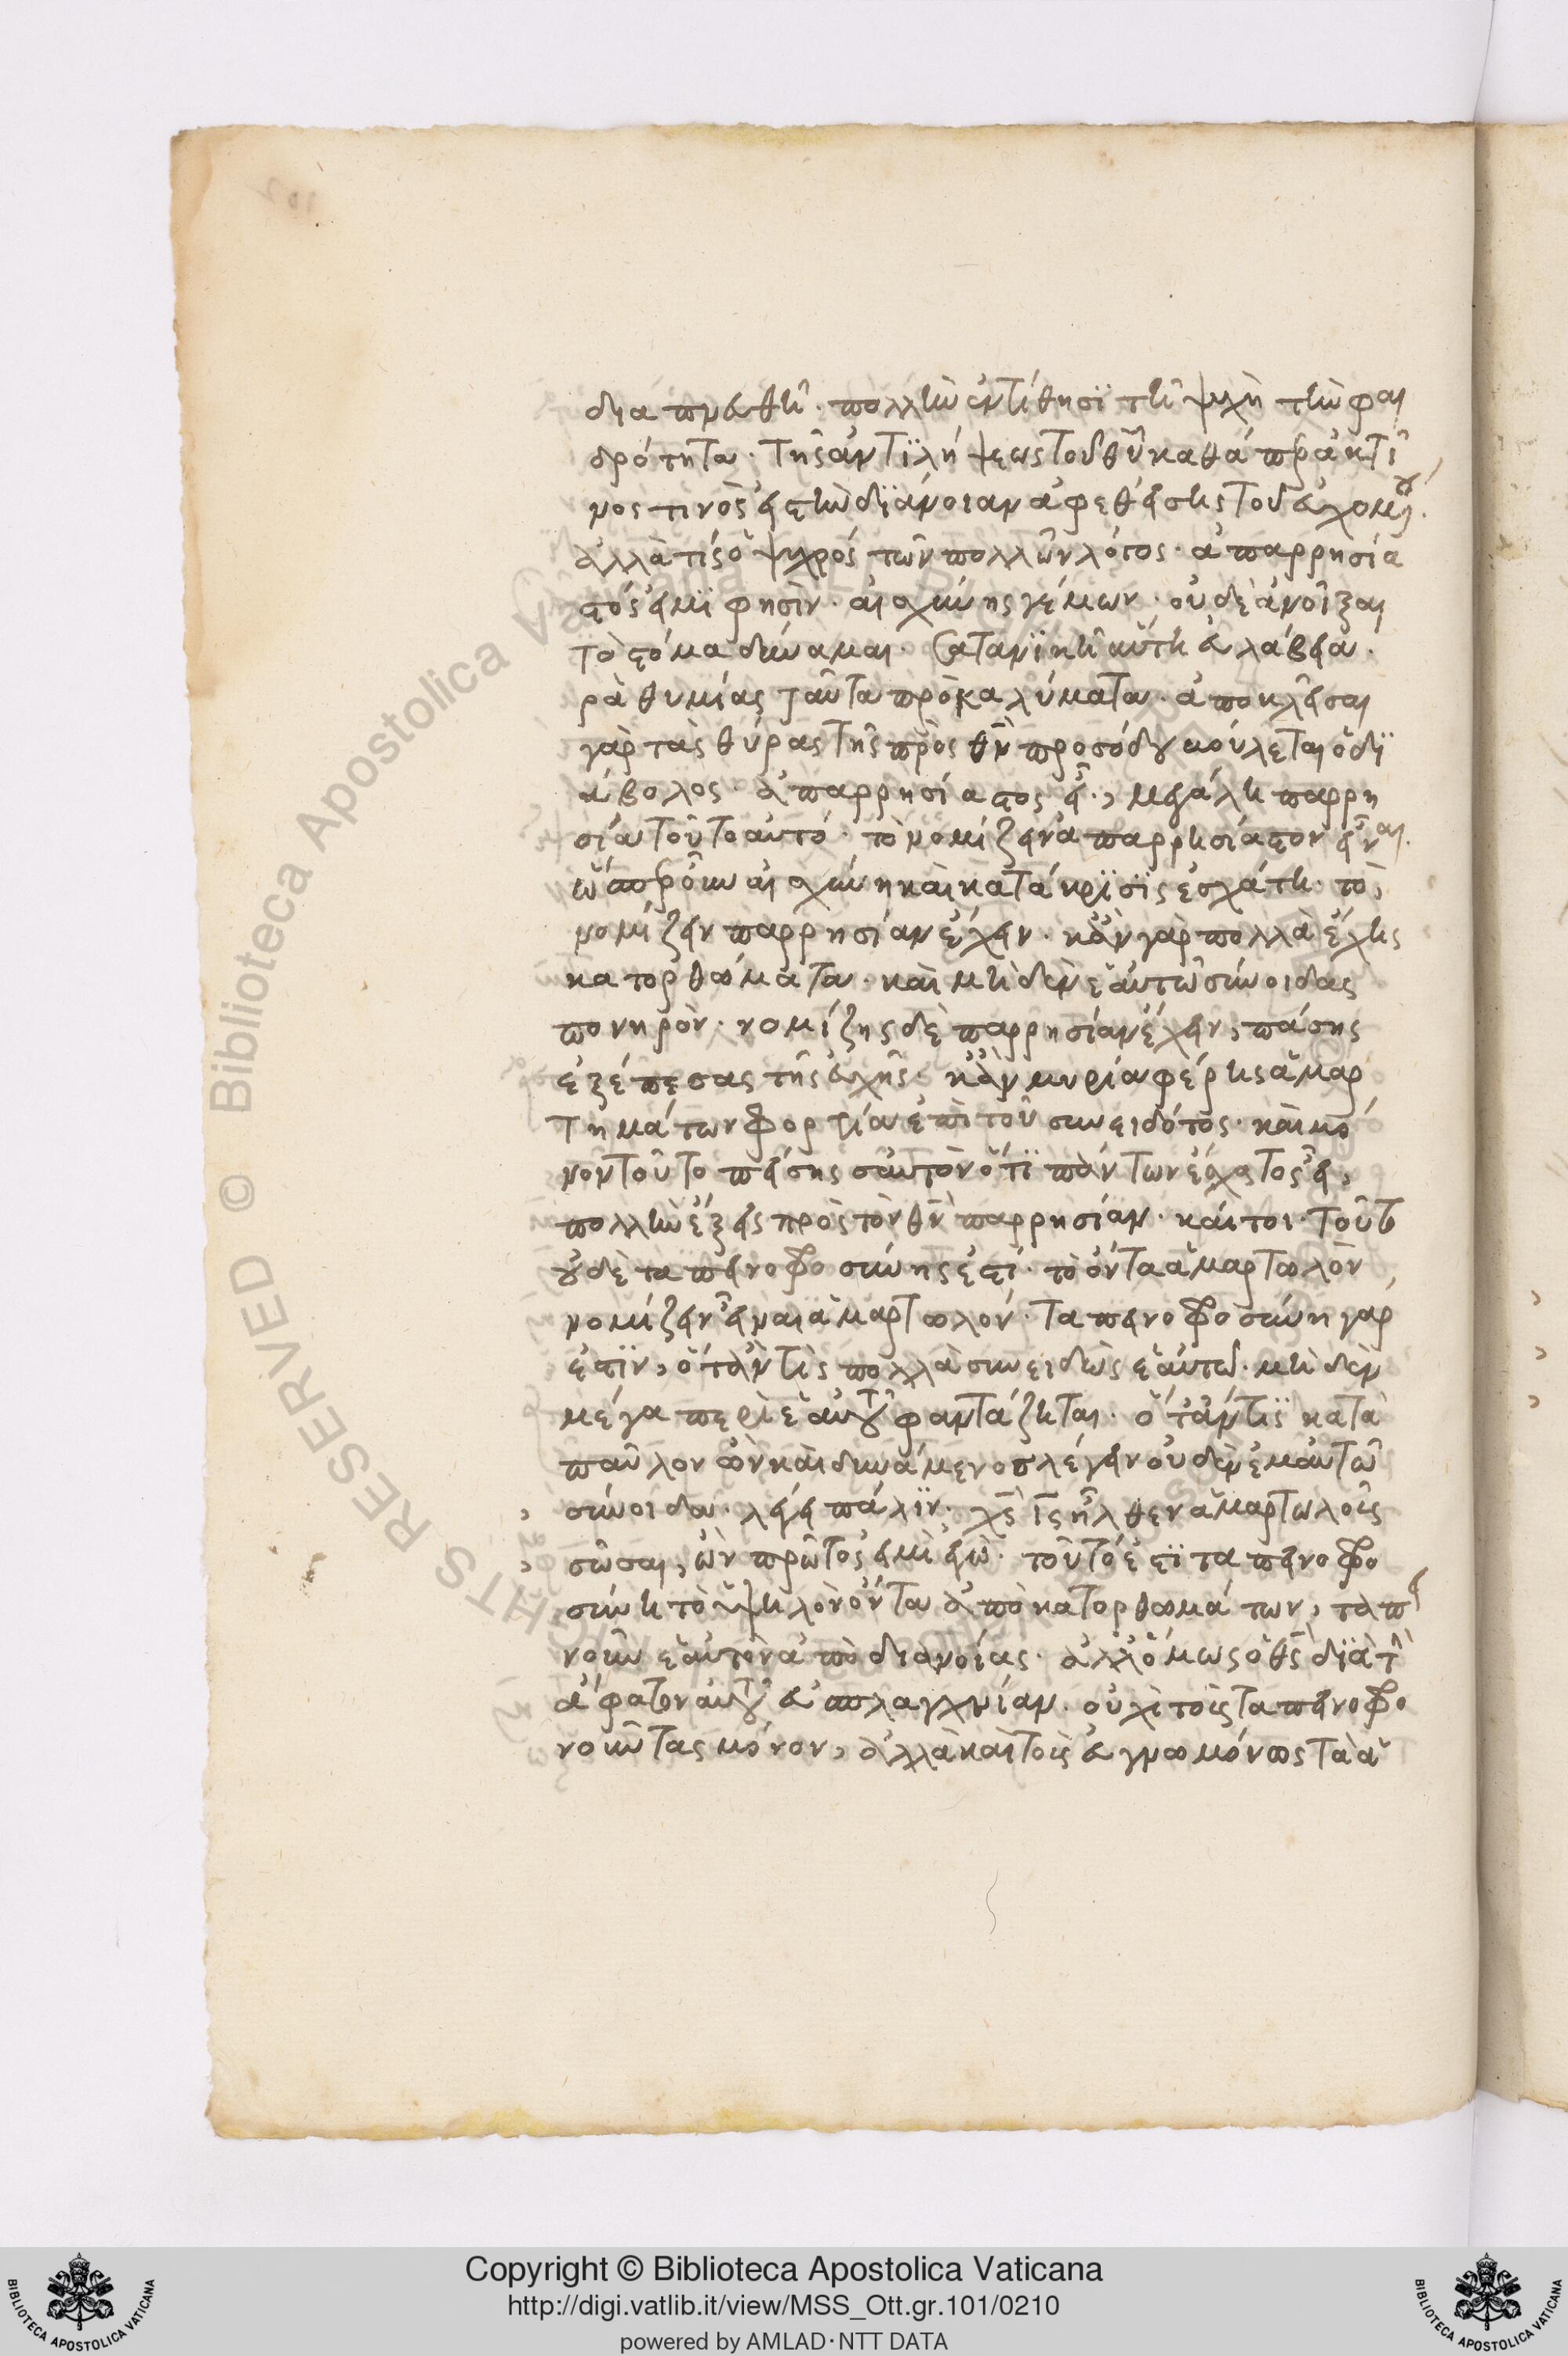 δια πραχθῆ· πολλὴν ἐντίθησϊ τῆ ψυχῆ τὴν φαι
δρότητα· τῆς ἀντϊλήψεως τοῦ θῦ καθάπερ ἀκτῖ
νος τινὸς εἰς τὴν διάνοιαν ἀφεθείσης τοῦ εὐχομένου.
ἀλλὰ τίς ὁ ψυχρός τῶν πολλῶν λόγος· ἀπαρρησία
στός εἰμϊ φησϊν· αἰσχύνης γέμων· οὐδὲ ἀνοῖξαι
τὸ στόμα δύναμαι. Σατανϊκὴ αὕτη εὐλάβεια·
ῥαθυμίας ταῦτα προκαλύματα· ἀποκλεῖσαι
γὰρ τὰς θύρας τῆς πρὸς θν̄ προσόδου βούλεται ὁ δϊ
άβολος· ἀπαρρησίαστος εἶ, μεγάλη παρρη
σία τοῦτο αὐτό· τὸ νομίζειν ἀπαρρησίαστον εἶναι.
ὥσπερ οὖν αἰσχύνη καὶ κατάκρϊσϊς ἐσχάτη· τὸ,
νομίζειν παρρησίαν ἔχειν· κἂν γὰρ πολλὰ ἔχης
κατορθώματα· καὶ μηδὲν ἑαυτῶ σύνοιδας
πονηρὸν· νομίζης δὲ παρρησίαν ἔχειν, πάσης
ἐξέπεσας τῆς εὐχῆς· κἂν μυρία φέρης ἁμαρ
τημάτων φορτία ἐπὶ τοῦ συνειδότος· καὶ μό
νον τοῦτο πείσης σαυτὸν ὅτϊ πάντων ἔσχατος εἶ,
πολλὴν ἕξεις πρὸς τὸν θν̄ παρρησίαν· καίτοι· τοῦτο
οὐδὲ ταπεινοφροσύνης ἐστί· τὸ ὄντα ἁμαρτωλὸν
νομίζειν εἶναι ἁμαρτωλόν· ταπεινοφροσύνη γάρ
ἐστϊν, ὅταν τὶς πολλὰ συνειδὼς ἑαυτῶ· μηδὲν
μέγα περὶ ἑαυτοῦ φαντάζηται· ὅταν τϊς κατὰ
παῦλον ὢν καὶ δυνάμενος λέγειν οὐδὲν ἐμαυτῶ
σύνοιδα· λέγει πάλϊν· χς̄ ις̄ ἦλθεν ἁμαρτωλοὺς
σῶσαι, ὧν πρῶτος εἰμὶ ἐγὼ· τοῦτό ἐστϊ ταπεινοφρο
σύνη τὸ ὑψηλὸν ὄντα ἀπὸ κατορθωμάτων, ταπει
νοῦν ἑαυτὸν ἀπὸ διανοίας· ἀλλ᾽ ὅμως ὁ θς̄ διὰ τὴν
ἄφατον αὐτοῦ εὐσπλαγχνίαν· οὐχὶ τοὺς ταπεινοφρο
νοῦντας μόνον, ἀλλὰ καὶ τοὺς εὐγνωμόνως τὰ ἁ
Copyright © Biblioteca Apostolica Vaticana
http://digi.vatlib.it/view/MSS_Ott.gr.101/0210
powered by AMLAD·NTT DATA